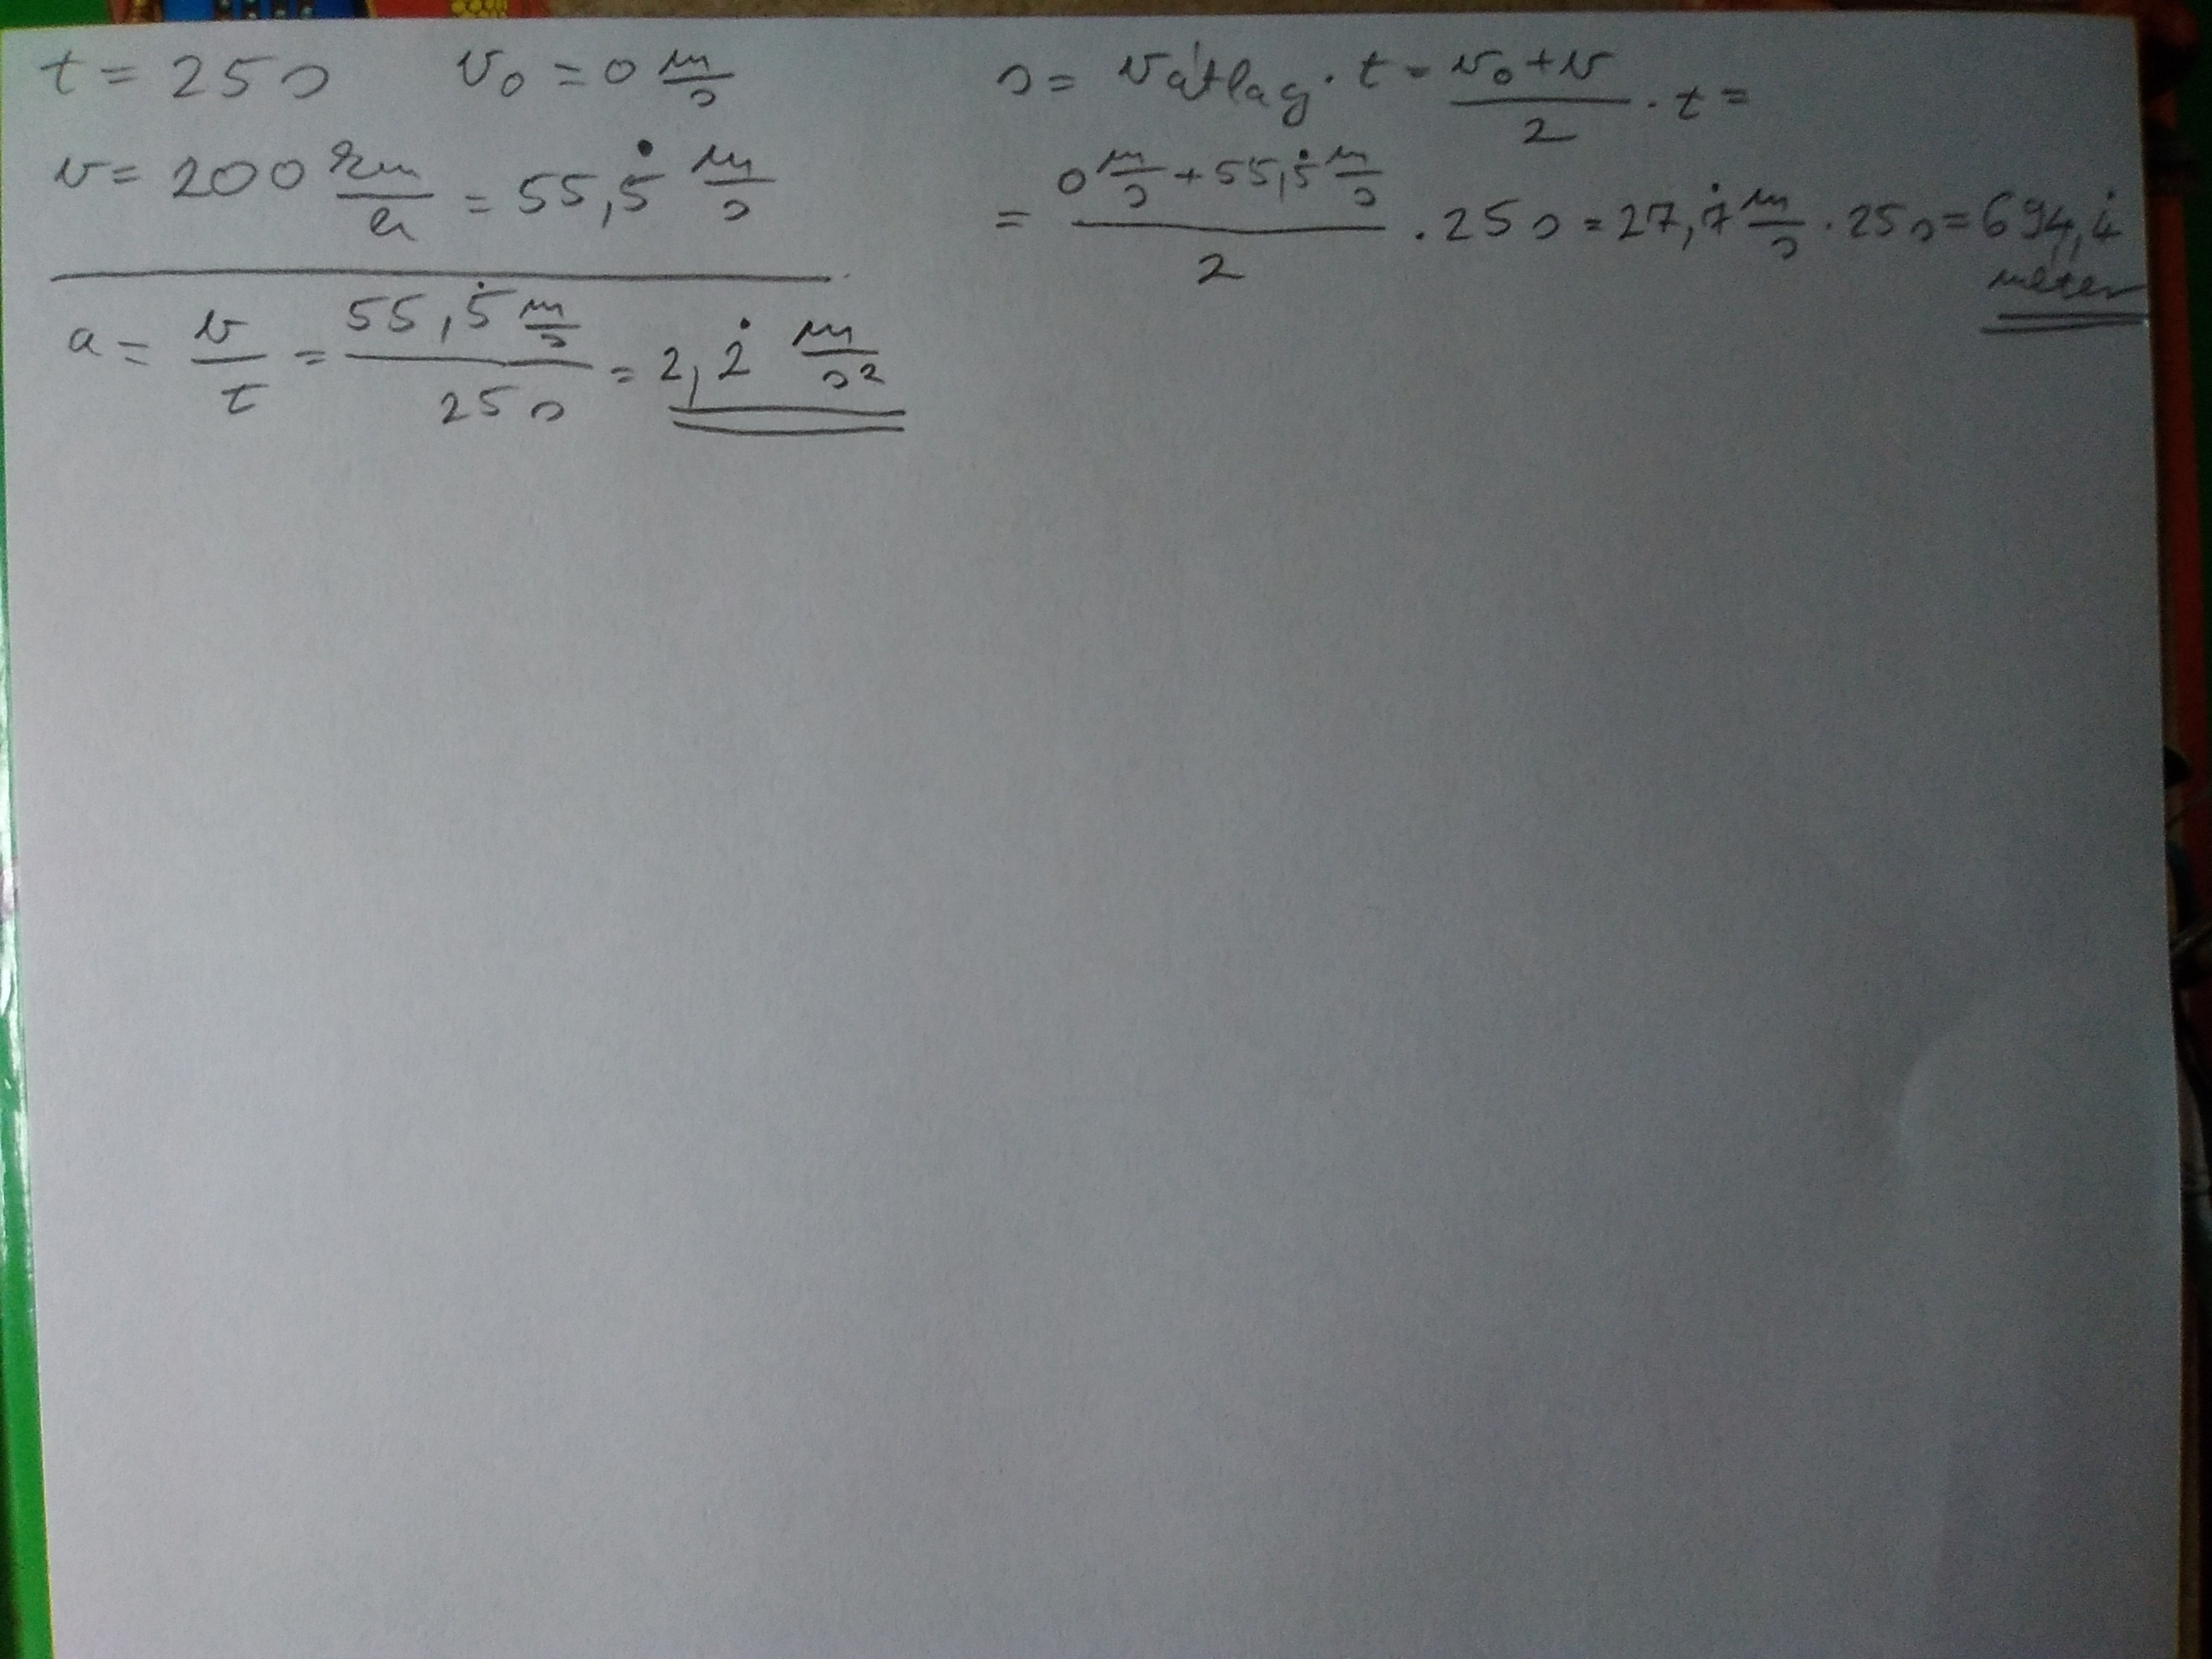 t = 25 s v₀ = 0 m/s
v = 200 km/h = 55,5̇ m/s
a = v/t = 55,5̇ m/s / 25 s = 2,2̇ m/s²
s = vátlag · t = (v₀ + v)/2 · t =
= (0 m/s + 55,5̇ m/s)/2 · 25 s = 27,7̇ m/s · 25 s = 694,4̇
méter